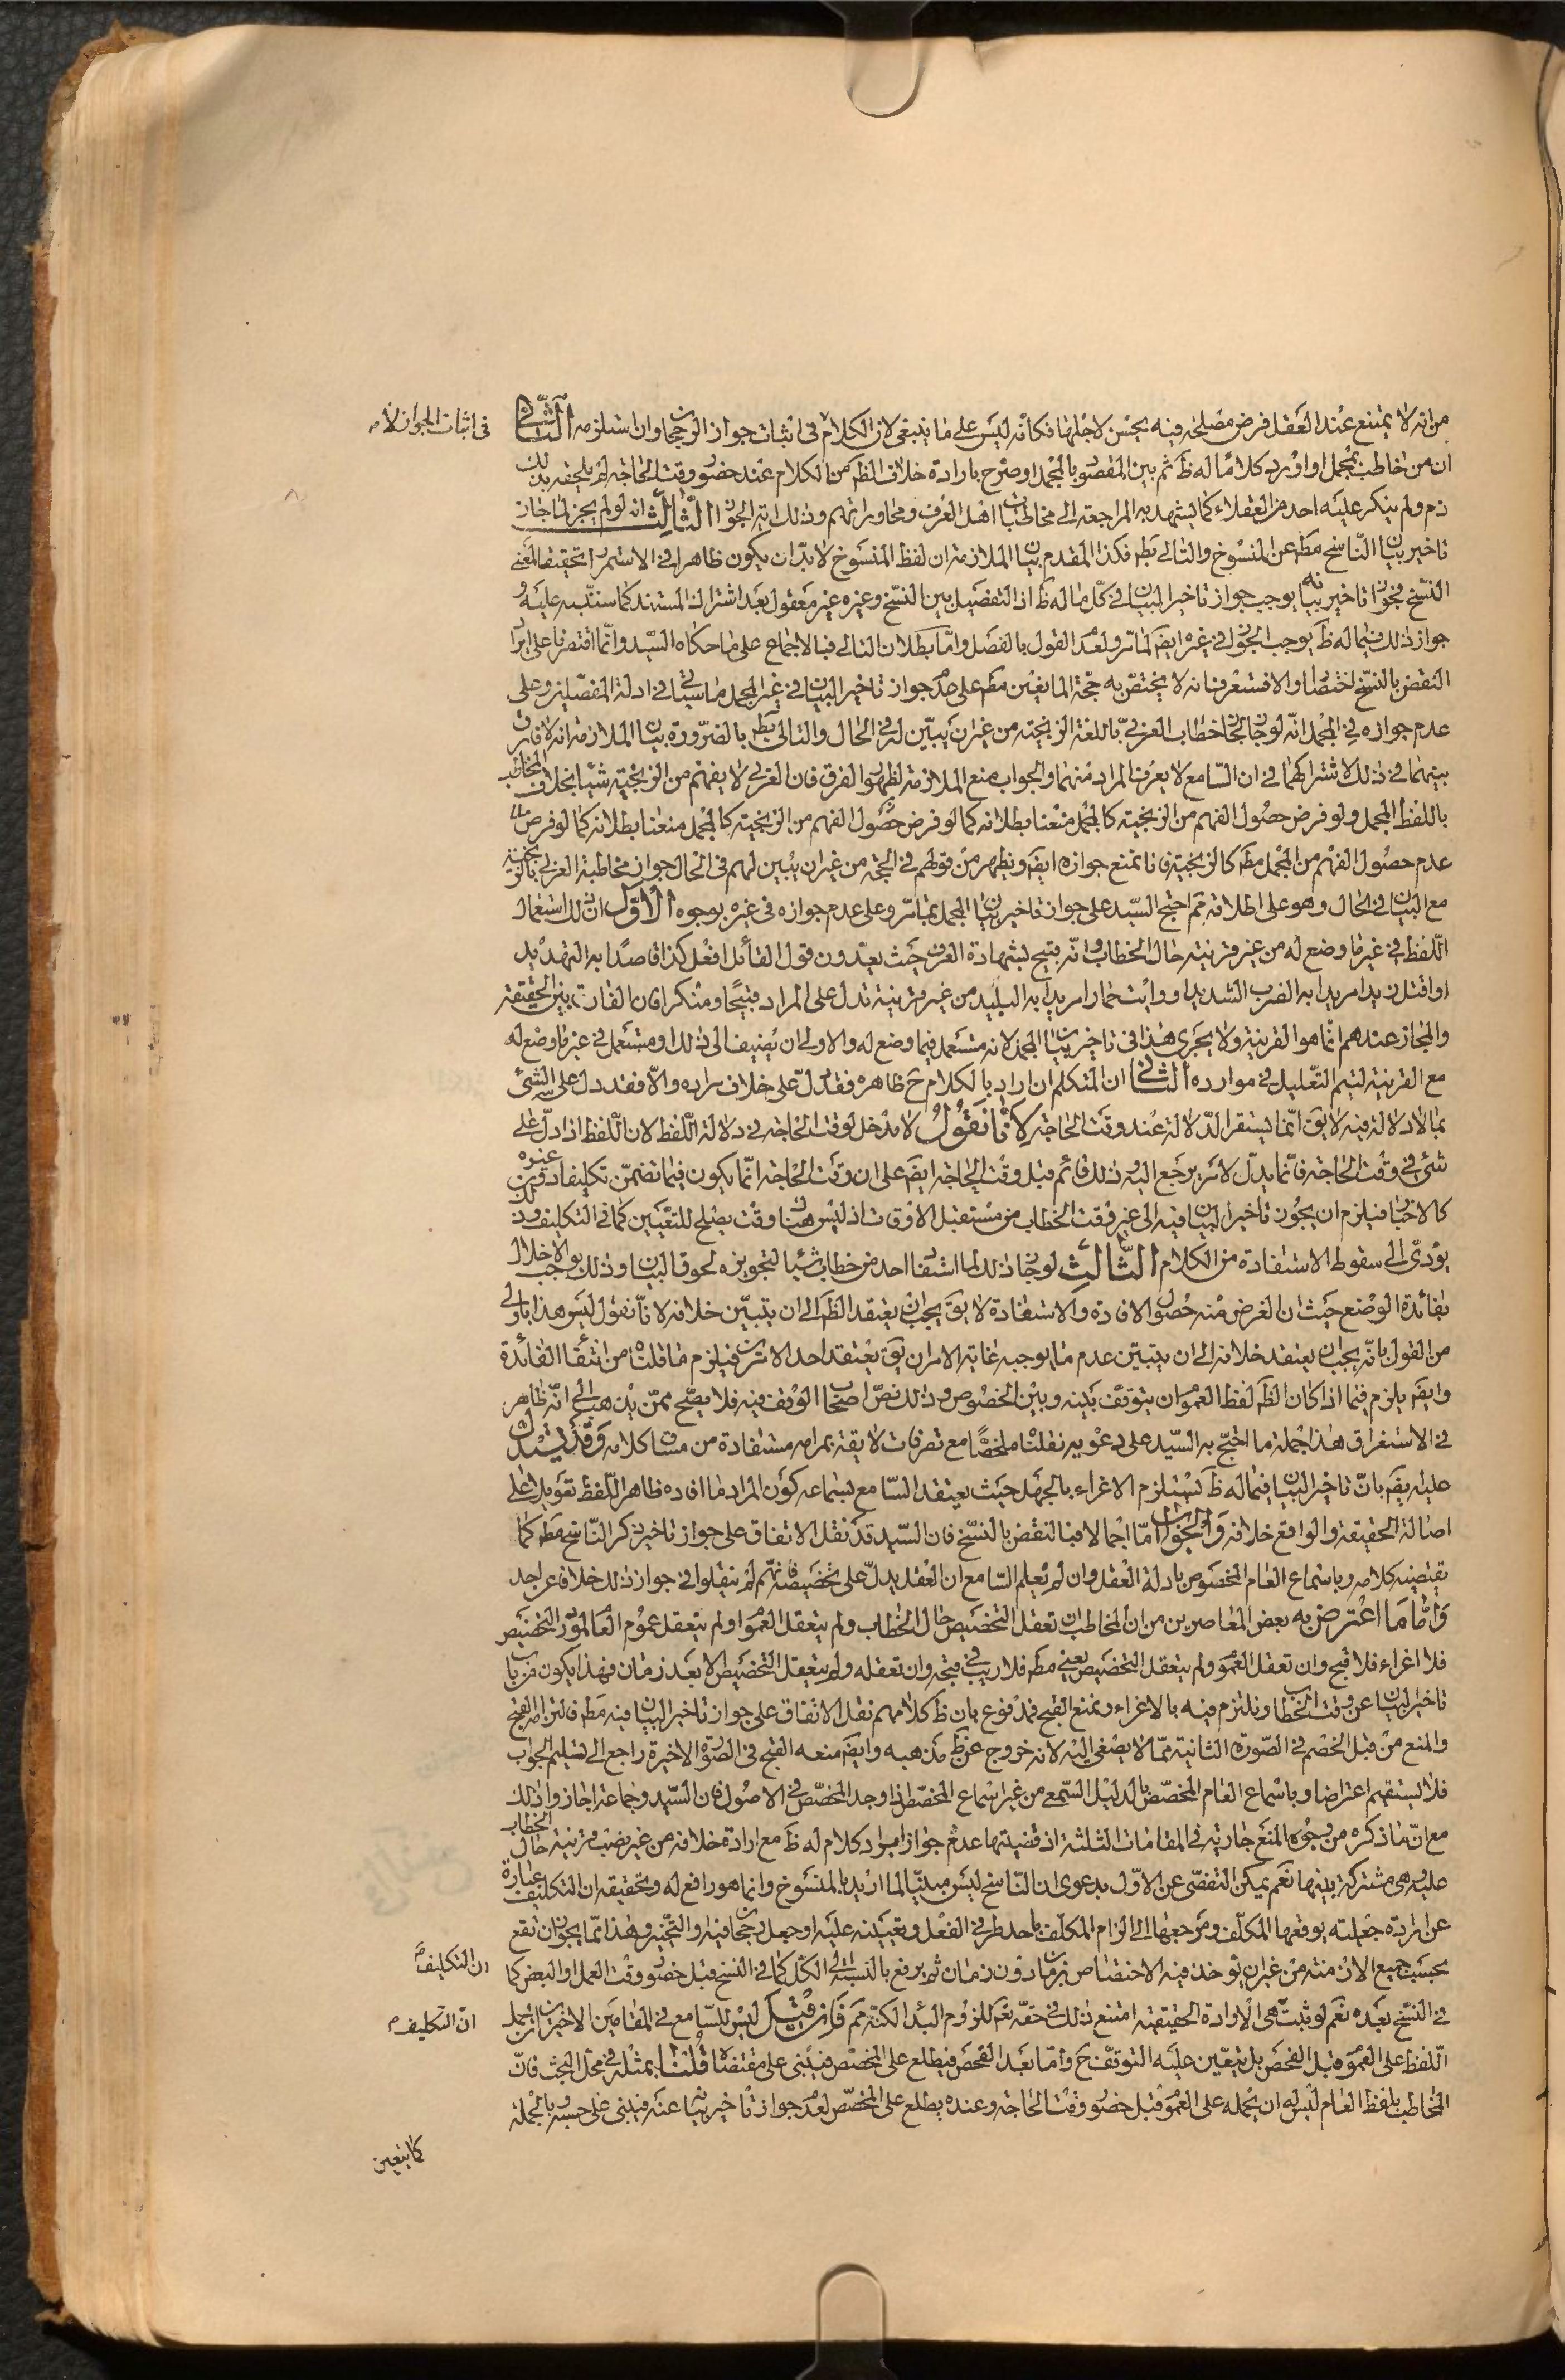 من انه لا يمتنع عند العقل فرض مصلحة فيه يحسن لاجلها فكانه ليس على ما ينبغى لان الكلام فى اثبات جواز الرجحان وان استلزمه الثانى
فى اثبات الجواز لا م
ان من خاطب بمجمل او اورد كلاما له ظ ثم بين المقصود بالمجمل او صرح بارادة خلاف الظم من الكلام عند حضور وقت الحاجة لم يلحقه بذلك
ذم ولم ينكر عليه احد من العقلاء كما يشهد به المراجعة الى مخاطبات اهل العرف ومحاوراتهم وذلك اية الجواز الثالث انه لو لم يجز لما جاز
تاخير بيان الناسخ مطم عن المنسوخ والتالى بطم فكذا المقدم بيان الملازمة ان لفظ المنسوخ لا بد ان يكون ظاهرا فى الاستمرار تحقيقا لمعنى
النسخ فجواز تاخير بيانه يوجب جواز تاخير البيان فى كل ما له ظ اذ التفصيل بين النسخ وغيره غير معقول بعد اشتراك المستند كما سننبه عليه و
جواز ذلك فيما له ظ يوجب الجواز فى غيره ايضم لما مر ولعدم القول بالفصل واما بطلان التالى فبالاجماع على ما حكاه السيد وانما اقتصرنا على ايراد
النقض بالنسخ اختصارا والا فستعرف انه لا يختص به حجة المانعين مطم على عدم جواز تاخير البيان فى غير المجمل ما سياتى فى ادلة المفصلين وعلى
عدم جوازه فى المجمل انه لو جاز لجاز خطاب العربى باللغة الزنجية من غير ان يبين له فى الحال والتالى بطم بالضرورة بيان الملازمة انه لا فارق
بينهما فى ذلك لاشتراكهما فى ان السامع لا يعرف المراد منهما والجواب منع الملازمة لظهور الفرق فان العربى لا يفهم من الزنجية شيئا بخلاف المخاطب
باللفظ المجمل ولو فرض حصول الفهم من الزنجية كالمجمل منعنا بطلانه كما لو فرض حصول الفهم من الزنجية كالمجمل منعنا بطلانه كما لو فرض
عدم حصول الفهم من المجمل مطم كالزنجية فانا نمنع جوازه ايضم ويظهر من قولهم فى الحجة من غير ان يبين لهم فى الحال جواز مخاطبة العربى بالزنجية
مع البيان فى الحال وهو على اطلاقه مم احتج السيد على جواز تاخير بيان المجمل بما مر وعلى عدم جوازه فى غيره بوجوه الاول ان ذلك استعمال
اللفظ فى غير ما وضع له من غير قرينة حال الخطاب وانه قبيح بشهادة العرف حيث يعدون قول القائل افعل كذا قاصدا به التهديد
او اقتل زيدا مريدا به الضرب الشديد او رايت حمارا مريدا به البليد من غير قرينة تدل على المراد قبيحا ومنكرا فان الفارق بين الحقيقة
والمجاز عندهم انما هو القرينة ولا يجرى هذا فى تاخير بيان المجمل لانه مستعمل فيما وضع له والاولى ان يضيف الى ذلك او مستعمل فى غير ما وضع له
مع القرينة ليتم التعليل فى موارده الثانى ان المتكلم ان اراد بالكلام ح ظاهره فقد دل على خلاف مراده والا فقد دل على الشئ
بما لا دلالة فيه لا يق انما يستقر الدلالة عند وقت الحاجة لانا نقول لا مدخل لوقت الحاجة فى دلالة اللفظ لان اللفظ اذا دل على
شئ فى وقت الحاجة فانما يدل لامر يرجع اليه وذلك قائم قبل وقت الحاجة ايضم على ان وقت الحاجة انما يكون فيما تضمن تكليفا دون غيره
كالاخبار فيلزم ان يجوز تاخير البيان فيه الى غير وقت الخطاب من مستقبل الاوقات اذ ليس هنا وقت يصلح للتعيين كما فى التكليف وذلك
يؤدى الى سقوط الاستفادة من الكلام الثالث لو جاز ذلك لما استفاد احد من خطاب شيئا لتجويزه لحوق البيان وذلك يوجب الاخلال
بفائدة الوضع حيث ان الغرض منه حصول الافادة والاستفادة لا يق يجب ان يعتقد الظم الى ان يتبين خلافه لانا نقول ليس هذا باولى
من القول بانه يجب ان يعتقد خلافه الى ان يتبين عدم ما يوجبه غاية الامر ان يق يعتقد احد الامرين فيلزم ما قلناه من انتفاء الفائدة
وايضم يلزم فيما اذا كان الظم لفظ العموم ان يتوقف بينه وبين الخصوص وذلك نص اصحاب الوقف فيه فلا يصح ممن يذهب الى انه ظاهر
فى الاستغراق هذا جملة ما احتج به السيد على دعوييه نقلناه ملخصا مع تصرفات لايقة بمرامه مستفادة من مساق كلامه وقد يستدل
عليه بضم بان تاخير البيان فيما له ظ يستلزم الاغراء بالجهل حيث يعتقد السامع بسماعه كون المراد ما افاده ظاهر اللفظ تعويلا على
اصالة الحقيقة والواقع خلافه والجواب اما اجمالا فبالنقض بالنسخ فان السيد قد نقل الاتفاق على جواز تاخير ذكر الناسخ مطم كما
يقتضيه كلامه وباستماع العام المخصوص بادلة العقل وان لم يعلم السامع ان العقل يدل على تخصيصه فانهم لم ينقلوا فى جواز ذلك خلافا عن احد
واما ما اعترض به بعض المعاصرين من ان المخاطب ان تعقل التخصيص حال الخطاب ولم يتعقل العموم او لم يتعقل عموم العام لمورد التخصيص
فلا اغراء فلا قبح وان تعقل العموم ولم يتعقل التخصيص يعنى مطم فلا ريب فى قبحه وان تعقله ولم يتعقل التخصيص الا بعد زمان فهذا يكون من باب
تاخير البيان عن وقت الخطاب ونلتزم فيه بالاغراء ونمنع القبح فمدفوع بان ظ كلامهم نقل الاتفاق على جواز تاخير البيان فيه مطم فالتزامه القبح
والمنع من قبل الخصم فى الصورة الثانية مما لا يصغى اليه لانه خروج عن ظم مذهبه وايضم منعه القبح فى الصورة الاخيرة راجع الى تسليم الجواب
فلا يستقيم اعتراضا وباسماع العام المخصص بالدليل السمعى من غير اسماع المخصص اذا وجد المخصص فى الاصول فان السيد وجماعة اجازوا ذلك
مع ان ما ذكره من وجوه المنع جارية فى المقامات الثلثة اذ قضيتها عدم جواز ايراد كلام له ظ مع ارادة خلافه من غير نصب قرينة حال الخطاب
عليه وهى مشتركة بينها نعم يمكن التفصى عن الاول بدعوى ان الناسخ ليس مبينا لما اريد بالمنسوخ وانما هو رافع له وتحقيقه ان التكليف عبارة
عن ارادة جعلية يوقعها المكلف ومرجعها الى الزام المكلف باحد طرفى الفعل وتعيينه عليه او جعل رجحان فيه او التخيير وهذا مما يجوز ان تقع
بحسب جميع الازمنة من غير ان يؤخذ فيه الاختصاص بزمان دون زمان ثم يرفع بالنسبة الى الكل كما فى النسخ قبل حضور وقت العمل او البعض كما
ان التكليف م
فى النسخ بعده نعم لو ثبت هى الارادة الحقيقية امتنع ذلك فى حقه تعم للزوم البدا لكنه مم فان قيل ليس للسامع فى المقامين الاخيرين ان يحمل
ان التكليف م
اللفظ على العموم قبل الفحص بل يتعين عليه التوقف ح واما بعد الفحص فيطلع على المخصص فيبنى على مقتضاه قلنا بمثله فى محل البحث فان
المخاطب بلفظ العام ليس له ان يحمله على العموم قبل حضور وقت الحاجة وعنده يطلع على المخصص لعدم جواز تاخير بيانه عنه فيبنى على حسبه وبالجملة
كما يتعين